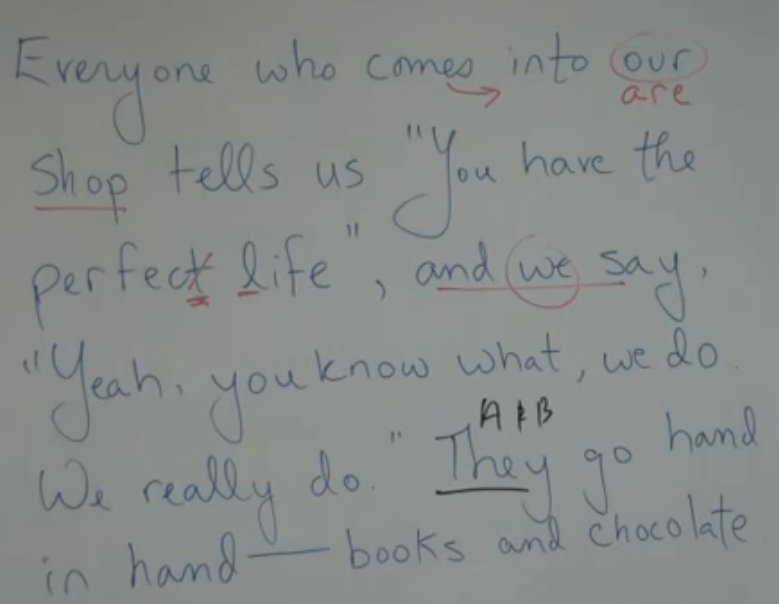 Everyone who comes into our
are
Shop tells us "You have the
perfect life", and we say,
"Yeah, you know what, we do.
A & B
We really do." They go hand
in hand — books and chocolate